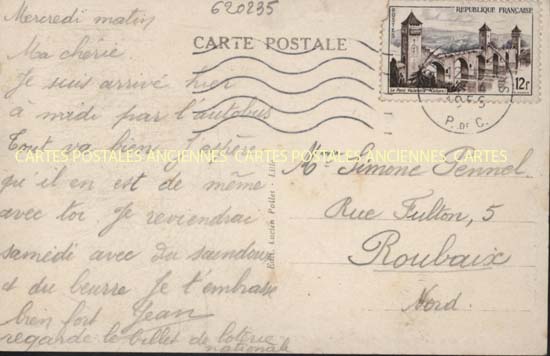 620235
Mercredi matin
Ma chérie
Je suis arrivé hier
à midi par l'autobus
Tout va bien J'espère
qu'il en est de même
avec toi Je reviendrai
samedi avec du saindoux
et du beurre Je t'embrasse
bien fort Jean
regarde le billet de loterie
nationale
CARTE POSTALE
REPUBLIQUE FRANÇAISE
12f
P. DE C.
CARTES POSTALES ANCIENNES CARTES POSTALES ANCIENNES CARTES
Edit. Lucien Pollet - Lille
Mme Simone Pennel
Rue Fulton, 5
Roubaix
Nord.